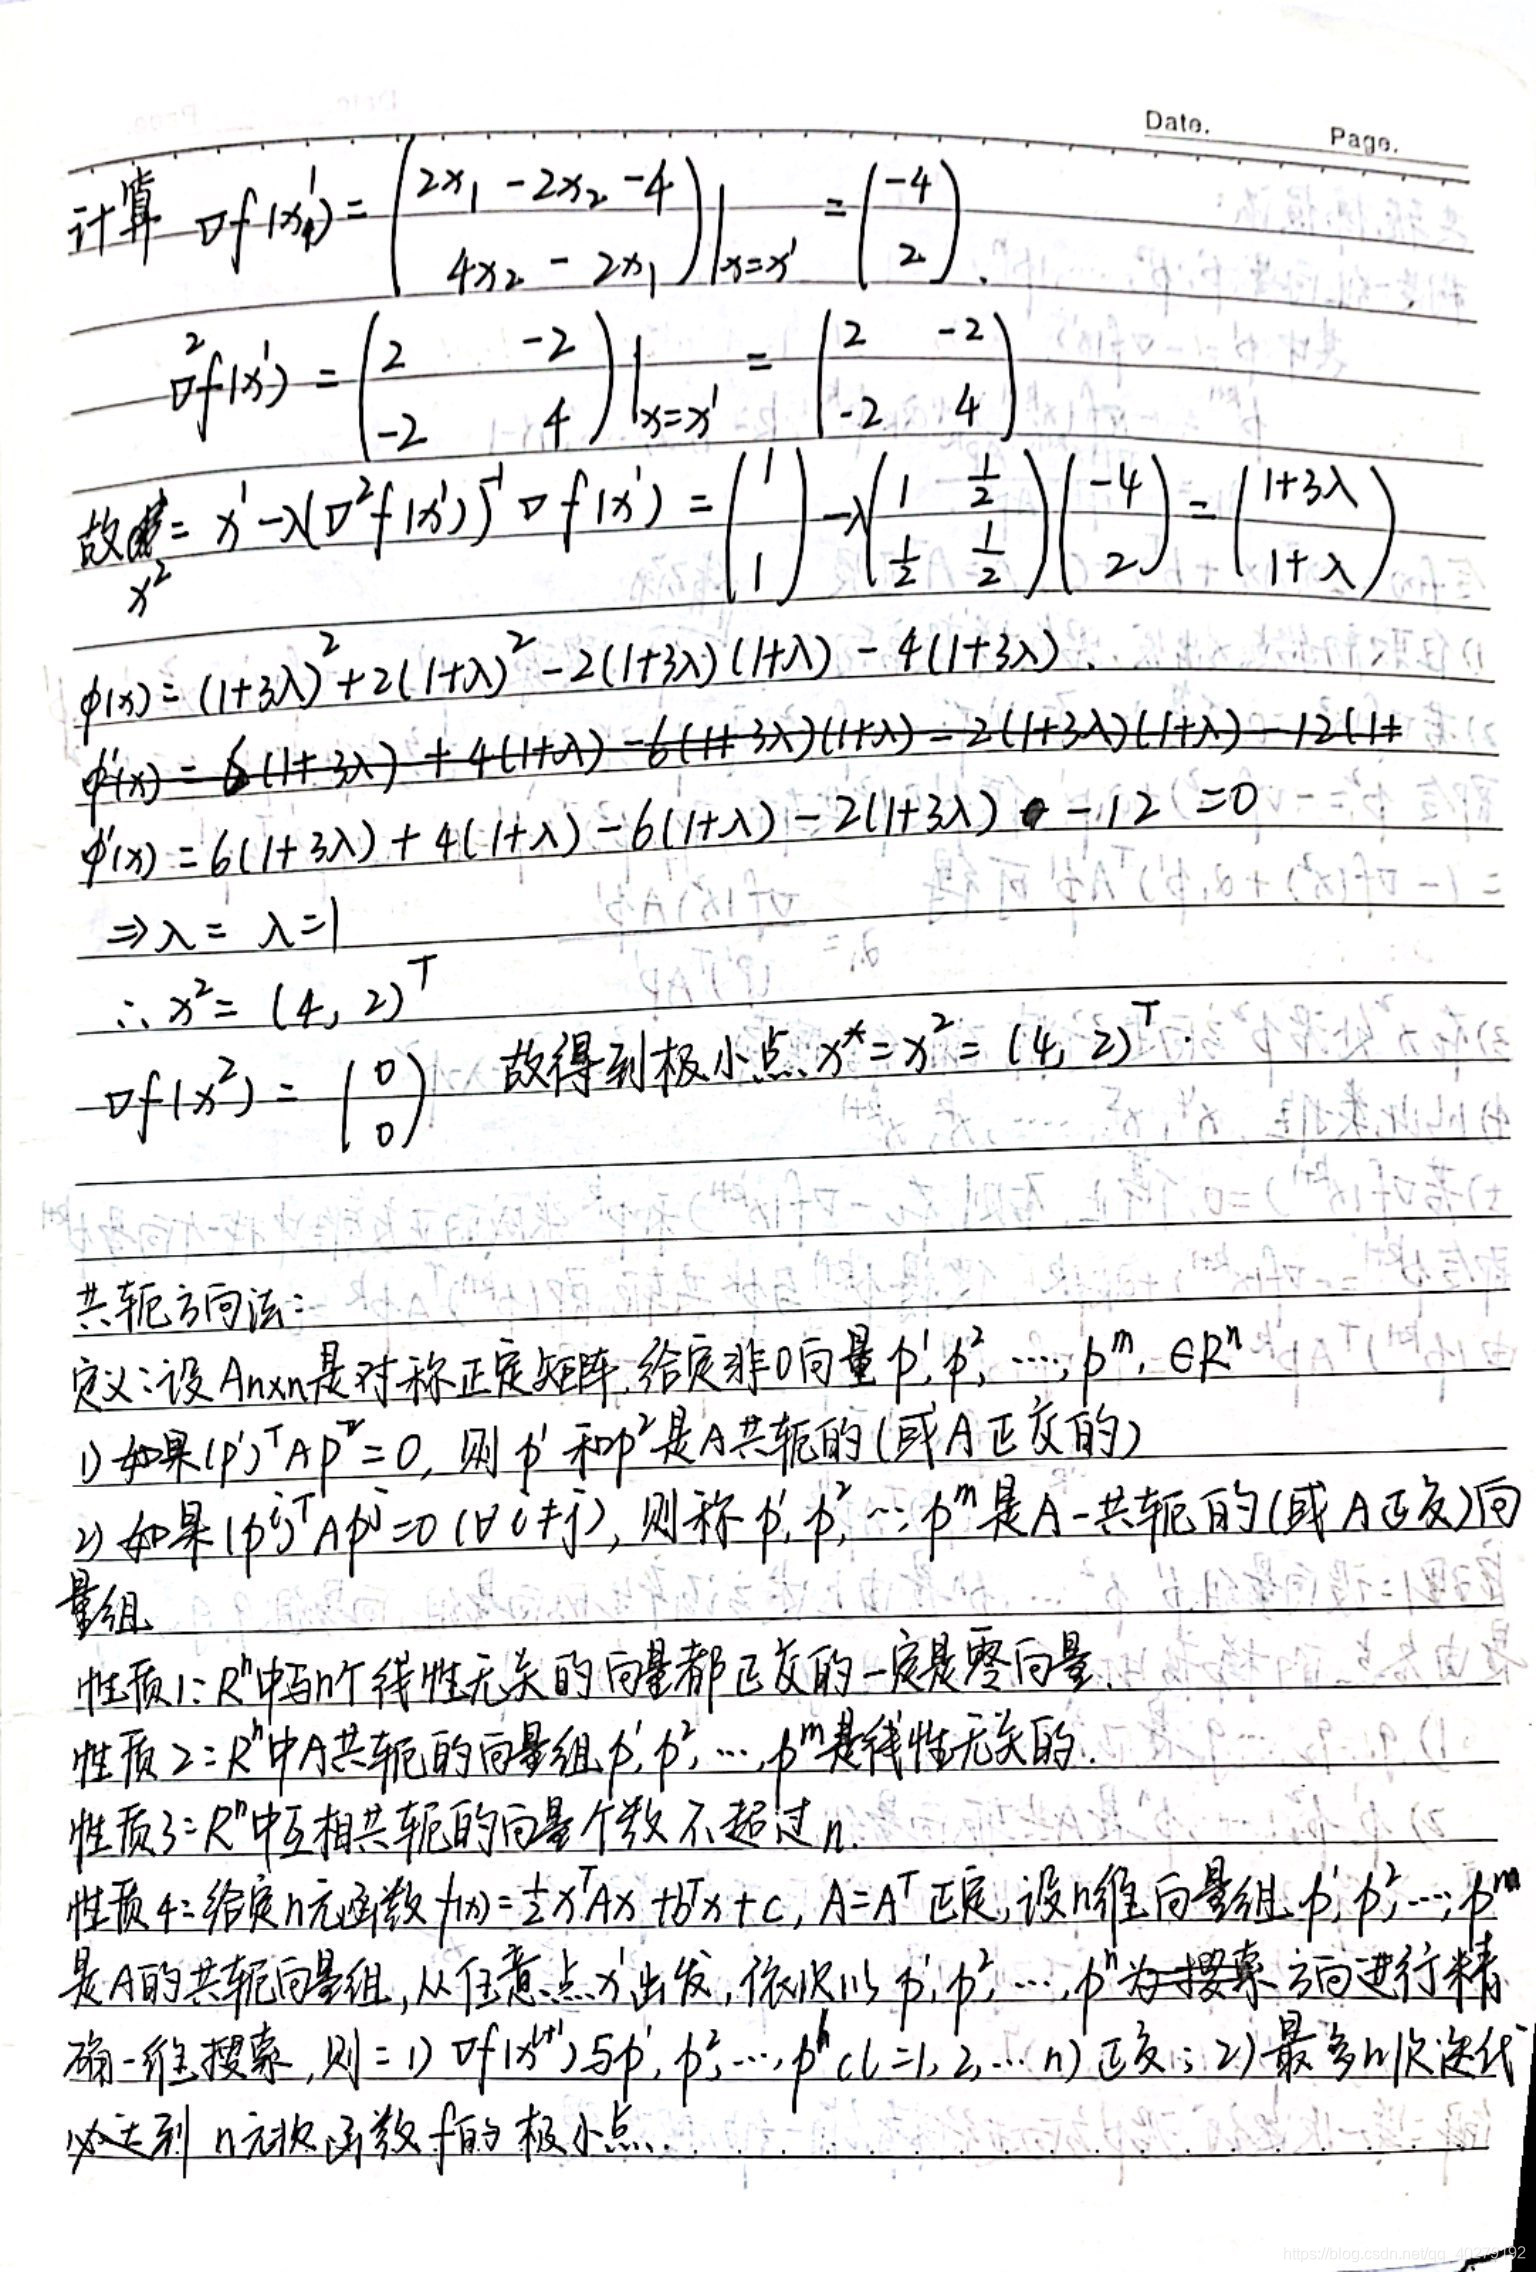 Date. Page.
计算 ∇f(x¹) = (2x₁ - 2x₂ - 4; 4x₂ - 2x₁)|x=x¹ = (-4; 2).
∇²f(x¹) = (2 -2; -2 4)|x=x¹ = (2 -2; -2 4)
故x² = x¹ - λ(∇²f(x¹))⁻¹ ∇f(x¹) = (1; 1) - λ(1 1/2; 1/2 1/2)(-4; 2) = (1+3λ; 1+λ)
φ(x) = (1+3λ)² + 2(1+λ)² - 2(1+3λ)(1+λ) - 4(1+3λ).
φ'(x) = 6(1+3λ) + 4(1+λ) - 6(1+3λ)(1+λ) - 2(1+3λ)(1+λ) - 12(1+
φ'(x) = 6(1+3λ) + 4(1+λ) - 6(1+λ) - 2(1+3λ) - 12 = 0
⇒ λ = λ = 1
∴ x² = (4, 2)ᵀ
∇f(x²) = (0; 0) 故得到极小点 x* = x² = (4, 2)ᵀ.
共轭方向法:
定义:设An×n是对称正定矩阵,给定非0向量p¹, p², …, pᵐ, ∈Rⁿ
1) 如果(p¹)ᵀAp²=0, 则p¹和p²是A共轭的(或A正交的)
2) 如果(pⁱ)ᵀApʲ=0 (∀i≠j), 则称p¹, p², …, pᵐ是A-共轭的(或A正交)向
量组
性质1: Rⁿ中与n个线性无关的向量都正交的一定是零向量.
性质2: Rⁿ中A共轭的向量组p¹, p², …, pᵐ是线性无关的.
性质3: Rⁿ中互相共轭的向量个数不超过n.
性质4: 给定n元函数f(x)=½xᵀAx+bᵀx+c, A=Aᵀ正定, 设n维向量组p¹, p², …, pᵐ
是A的共轭向量组, 从任意点x¹出发, 依次以p¹, p², …, pⁿ为搜索方向进行精
确一维搜索, 则: 1) ∇f(xⁱ⁺¹)与p¹, p², …, (i=1, 2, … n)正交; 2) 最多n次迭代
必达到n元次函数f的极小点.
https://blog.csdn.net/qq_40279192